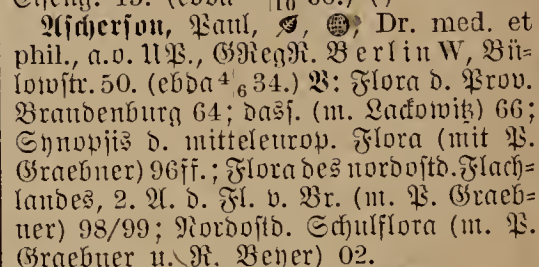 Ascherson, Paul, Dr. med. et
phil., a.o. UP., GRegR. Berlin W, Bü=
lowstr. 50. (ebda 4/6 34.) V: Flora d. Prov.
Brandenburg 64; dass. (m. Lackowitz) 66;
Synopsis d. mitteleurop. Flora (mit P.
Graebner) 96ff.; Flora des nordostd. Flach=
landes, 2. A. d. Fl. v. Br. (m. P. Graeb=
ner) 98/99; Nordostd. Schulflora (m. P.
Graebner u. R. Beyer) 02.